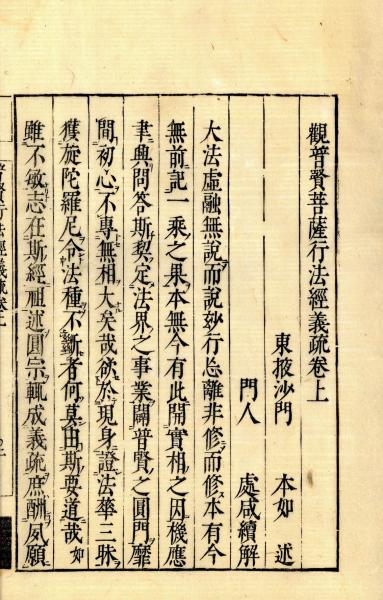 觀普賢菩薩行法經義疏卷上
東掖沙門　本如　述
門人　處咸續解
大法虛融無說而說妙行忘離非修而修本有今
無前記一乘之果本無今有此開實相之因機應
聿興問答斯契定法界之事業闢普賢之圓門靡
間初心不專無相大矣哉欲於現身證法華三昧
獲旋陀羅尼令法種不斷者何莫由斯要道哉如
雖不敏志在斯經祖述圓宗輒成義疏庶酬夙願